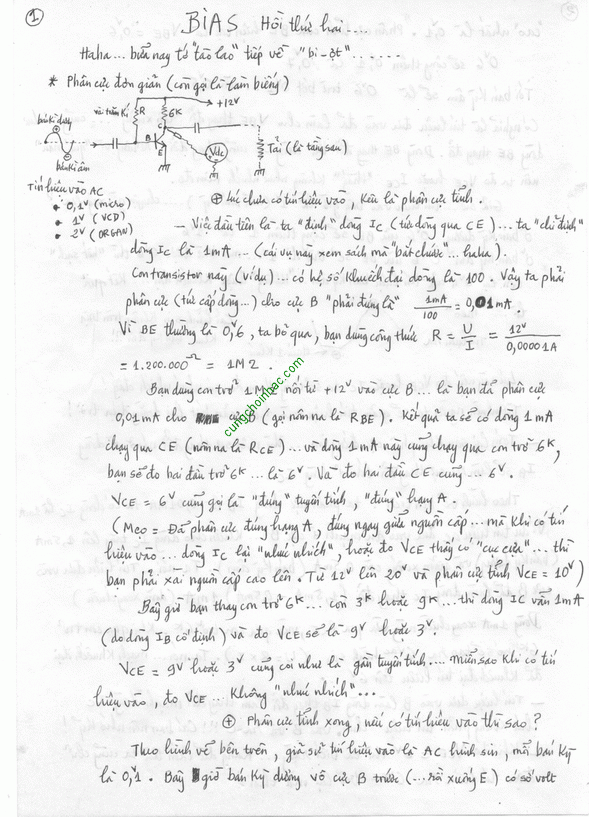 1
BIAS Hồi thứ hai....
Haha... bữa nay tớ "tào lao" tiếp về "bi-ột"......
* Phân cực đơn giản (còn gọi là làm biếng)
+12V
vài trăm K R 6K
bán kì dương
C
B
E
Vdc
Tải (là tầng sau)
bán kì âm
Tín hiệu vào AC
• 0,1V (micro)
• 1V (VCD)
• 2V (ORGAN)
⊕ lúc chưa có tín hiệu vào, kêu là phân cực tĩnh.
– Việc đầu tiên là ta "định" dòng IC (tức dòng qua CE)... ta "chỉ định"
dòng IC là 1mA ... (cái vụ này xem sách mà "bắt chước"... haha).
Con transistor này (ví dụ)... có hệ số khuếch đại dòng là 100. Vậy ta phải
phân cực (tức cấp dòng...) cho cực B "phải đúng là" 1mA/100 = 0,01mA.
Vì BE thường là 0V6, ta bỏ qua, bạn dùng công thức R = U/I = 12V/0,00001A
= 1.200.000Ω = 1M2.
Bạn dùng con trở 1M2 nối từ +12V vào cực B... là bạn đã phân cực
0,01mA cho cực B (gọi nôm na là RBE). Kết quả ta sẽ có dòng 1mA
chạy qua CE (nôm na là RCE)... và dòng 1mA này cũng chạy qua con trở 6K,
bạn sẽ đo hai đầu trở 6K... là 6V. Và đo hai đầu CE cũng... 6V.
VCE = 6V cũng gọi là "đúng" tuyến tính, "đúng" hạng A.
(Mẹo = Đã phân cực đúng hạng A, đúng ngay giữa nguồn cấp... mà khi có tín
hiệu vào... dòng IC lại "nhúc nhích", hoặc đo VCE thấy có "cục cựa"... thì
bạn phải xài nguồn cấp cao lên. Từ 12V lên 20V và phân cực tĩnh VCE = 10V)
Bây giờ bạn thay con trở 6K... còn 3K hoặc 9K... thì dòng IC vẫn 1mA
(do dòng IB cố định) và đo VCE sẽ là 9V hoặc 3V.
VCE = 9V hoặc 3V cũng coi như là gần tuyến tính.... miễn sao khi có tín
hiệu vào, đo VCE... không "nhúc nhích"...
⊕ Phân cực tĩnh xong, nếu có tín hiệu vào thì sao?
Theo hình vẽ bên trên, giả sử tín hiệu vào là AC hình sin, mỗi bán kỳ
là 0,1V. Bây giờ bán kỳ dương vô cực B trước (...rồi xuống E) có số volt
cungchoinhac.com